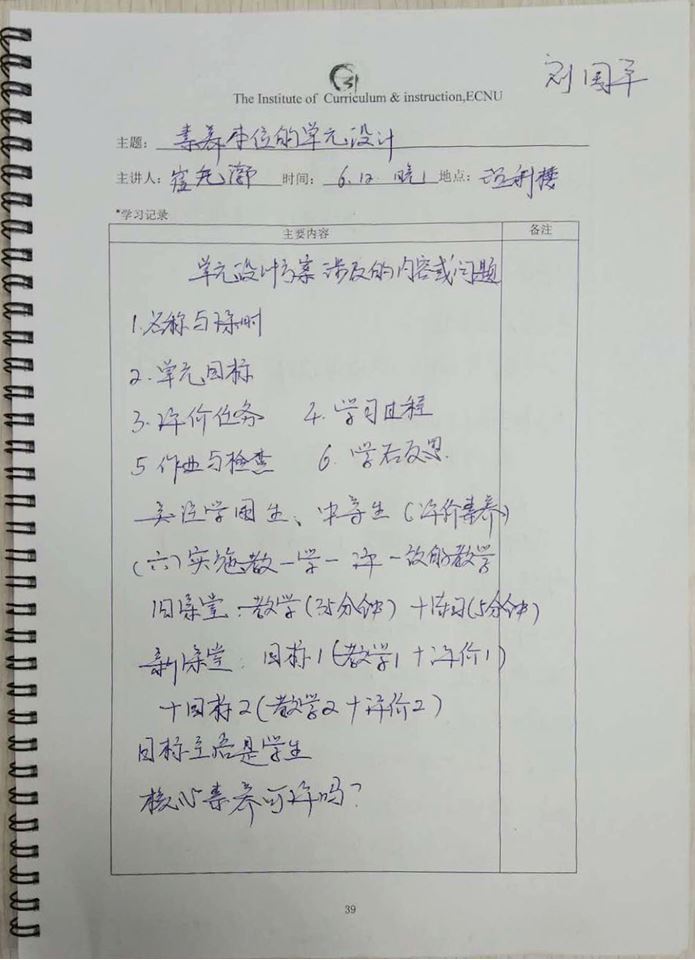 刘国平
The Institute of Curriculum & instruction,ECNU
主题: 素养本位的单元设计
主讲人: 崔允漷 时间: 6.12 晚 地点: 逸利楼
*学习记录
主要内容 备注
单元设计方案涉及的内容或问题
1.名称与课时
2.单元目标
3.评价任务 4.学习过程
5 作业与检查 6.学后反思.
关注学困生、中等生(评价素养)
(六)实施教一学一评一致的教学
旧课堂:教学(35分钟)+练习(5分钟)
新课堂:目标1(教学1+评价1)
+目标2(教学2+评价2)
目标主语是学生
核心素养可评吗?
39